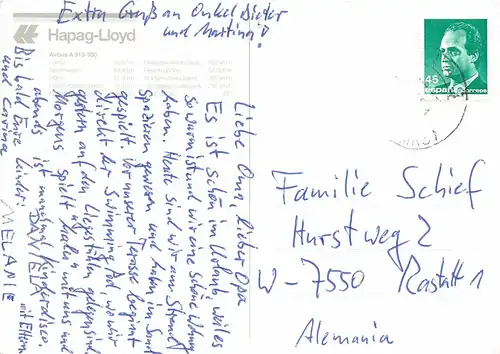 Extra Gruß an Onkel Dieter
und Martina!
Hapag-Lloyd
Airbus A 310-300
45
españa correos
Liebe Oma, lieber Opa
Es ist schön im Urlaub weil es
so warm ist und wir eine schöne Wohnung
haben. Heute sind wir am Strand
spazieren gewesen und haben im Sand
gespielt. Vor unserer Terasse beginnt
direkt der Swimming Pool wo wir
gestern auf den Liegestühlen gelegen sind
Morgens spielt mit uns und
abends ist manchmal Kinderdisco.
Bis bald Eure Kinder: DANIELA mit Eltern
und Corina MELANIE
Familie Schief
Hurstweg 2
W-7550 Rastatt 1
Alemania